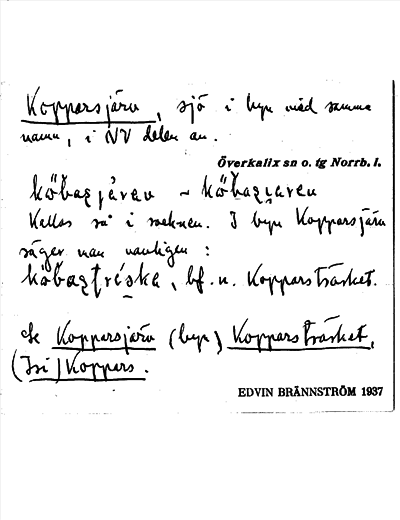 Kopparsjärv, sjö i byn med samma
namn, i NV delen av.
Överkalix sn o. tg Norrb. l.
kåbasjárav ~ kåbasjáran
Kallas så i socknen. I byn Kopparsjärv
säger man vanligen:
kåbastrẹ́ska, bf. n. Kopparsträsket.
se Kopparsjärv (by) Kopparsträsket,
(Isi) Koppars.
EDVIN BRÄNNSTRÖM 1937